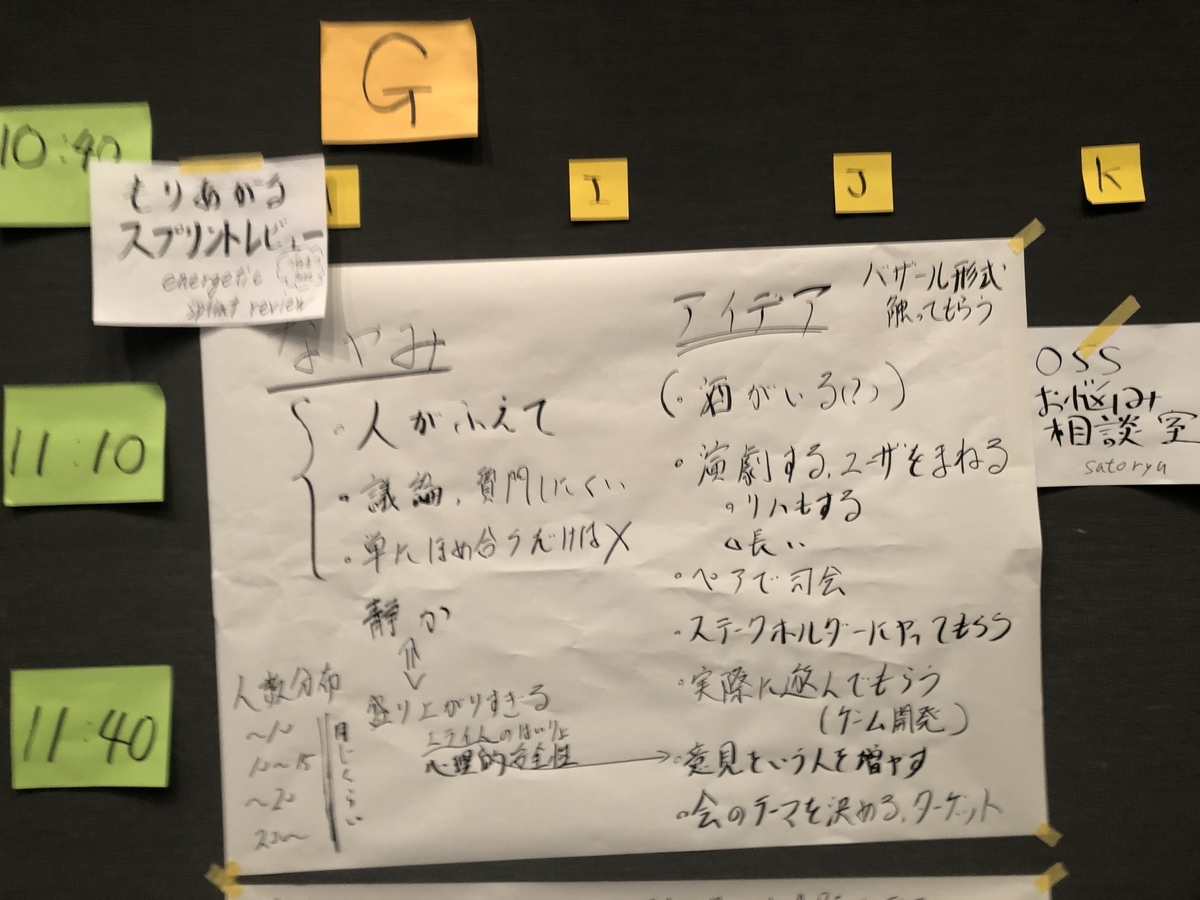 G
10:40
I
J
K
もりあがる
スプリントレビュー
energetic
sprint review
なやみ
・人がふえて
・議論、質問しにくい
・単にほめ合うだけは×
静か
盛り上がりすぎる
心理的安全性
人数分布
~10
10~15
~20
20~
同じくらい
アイデア
バザール形式
触ってもらう
(・酒がいる(?))
・演劇する、ユーザをまねる
・リハもする
長い
・ペアで司会
・ステークホルダーにやってもらう
・実際に遊んでもらう
(ゲーム開発)
・意見をいう人を増やす
・会のテーマを決める、ターゲット
OSS
お悩み
相談室
satoryu
11:10
11:40